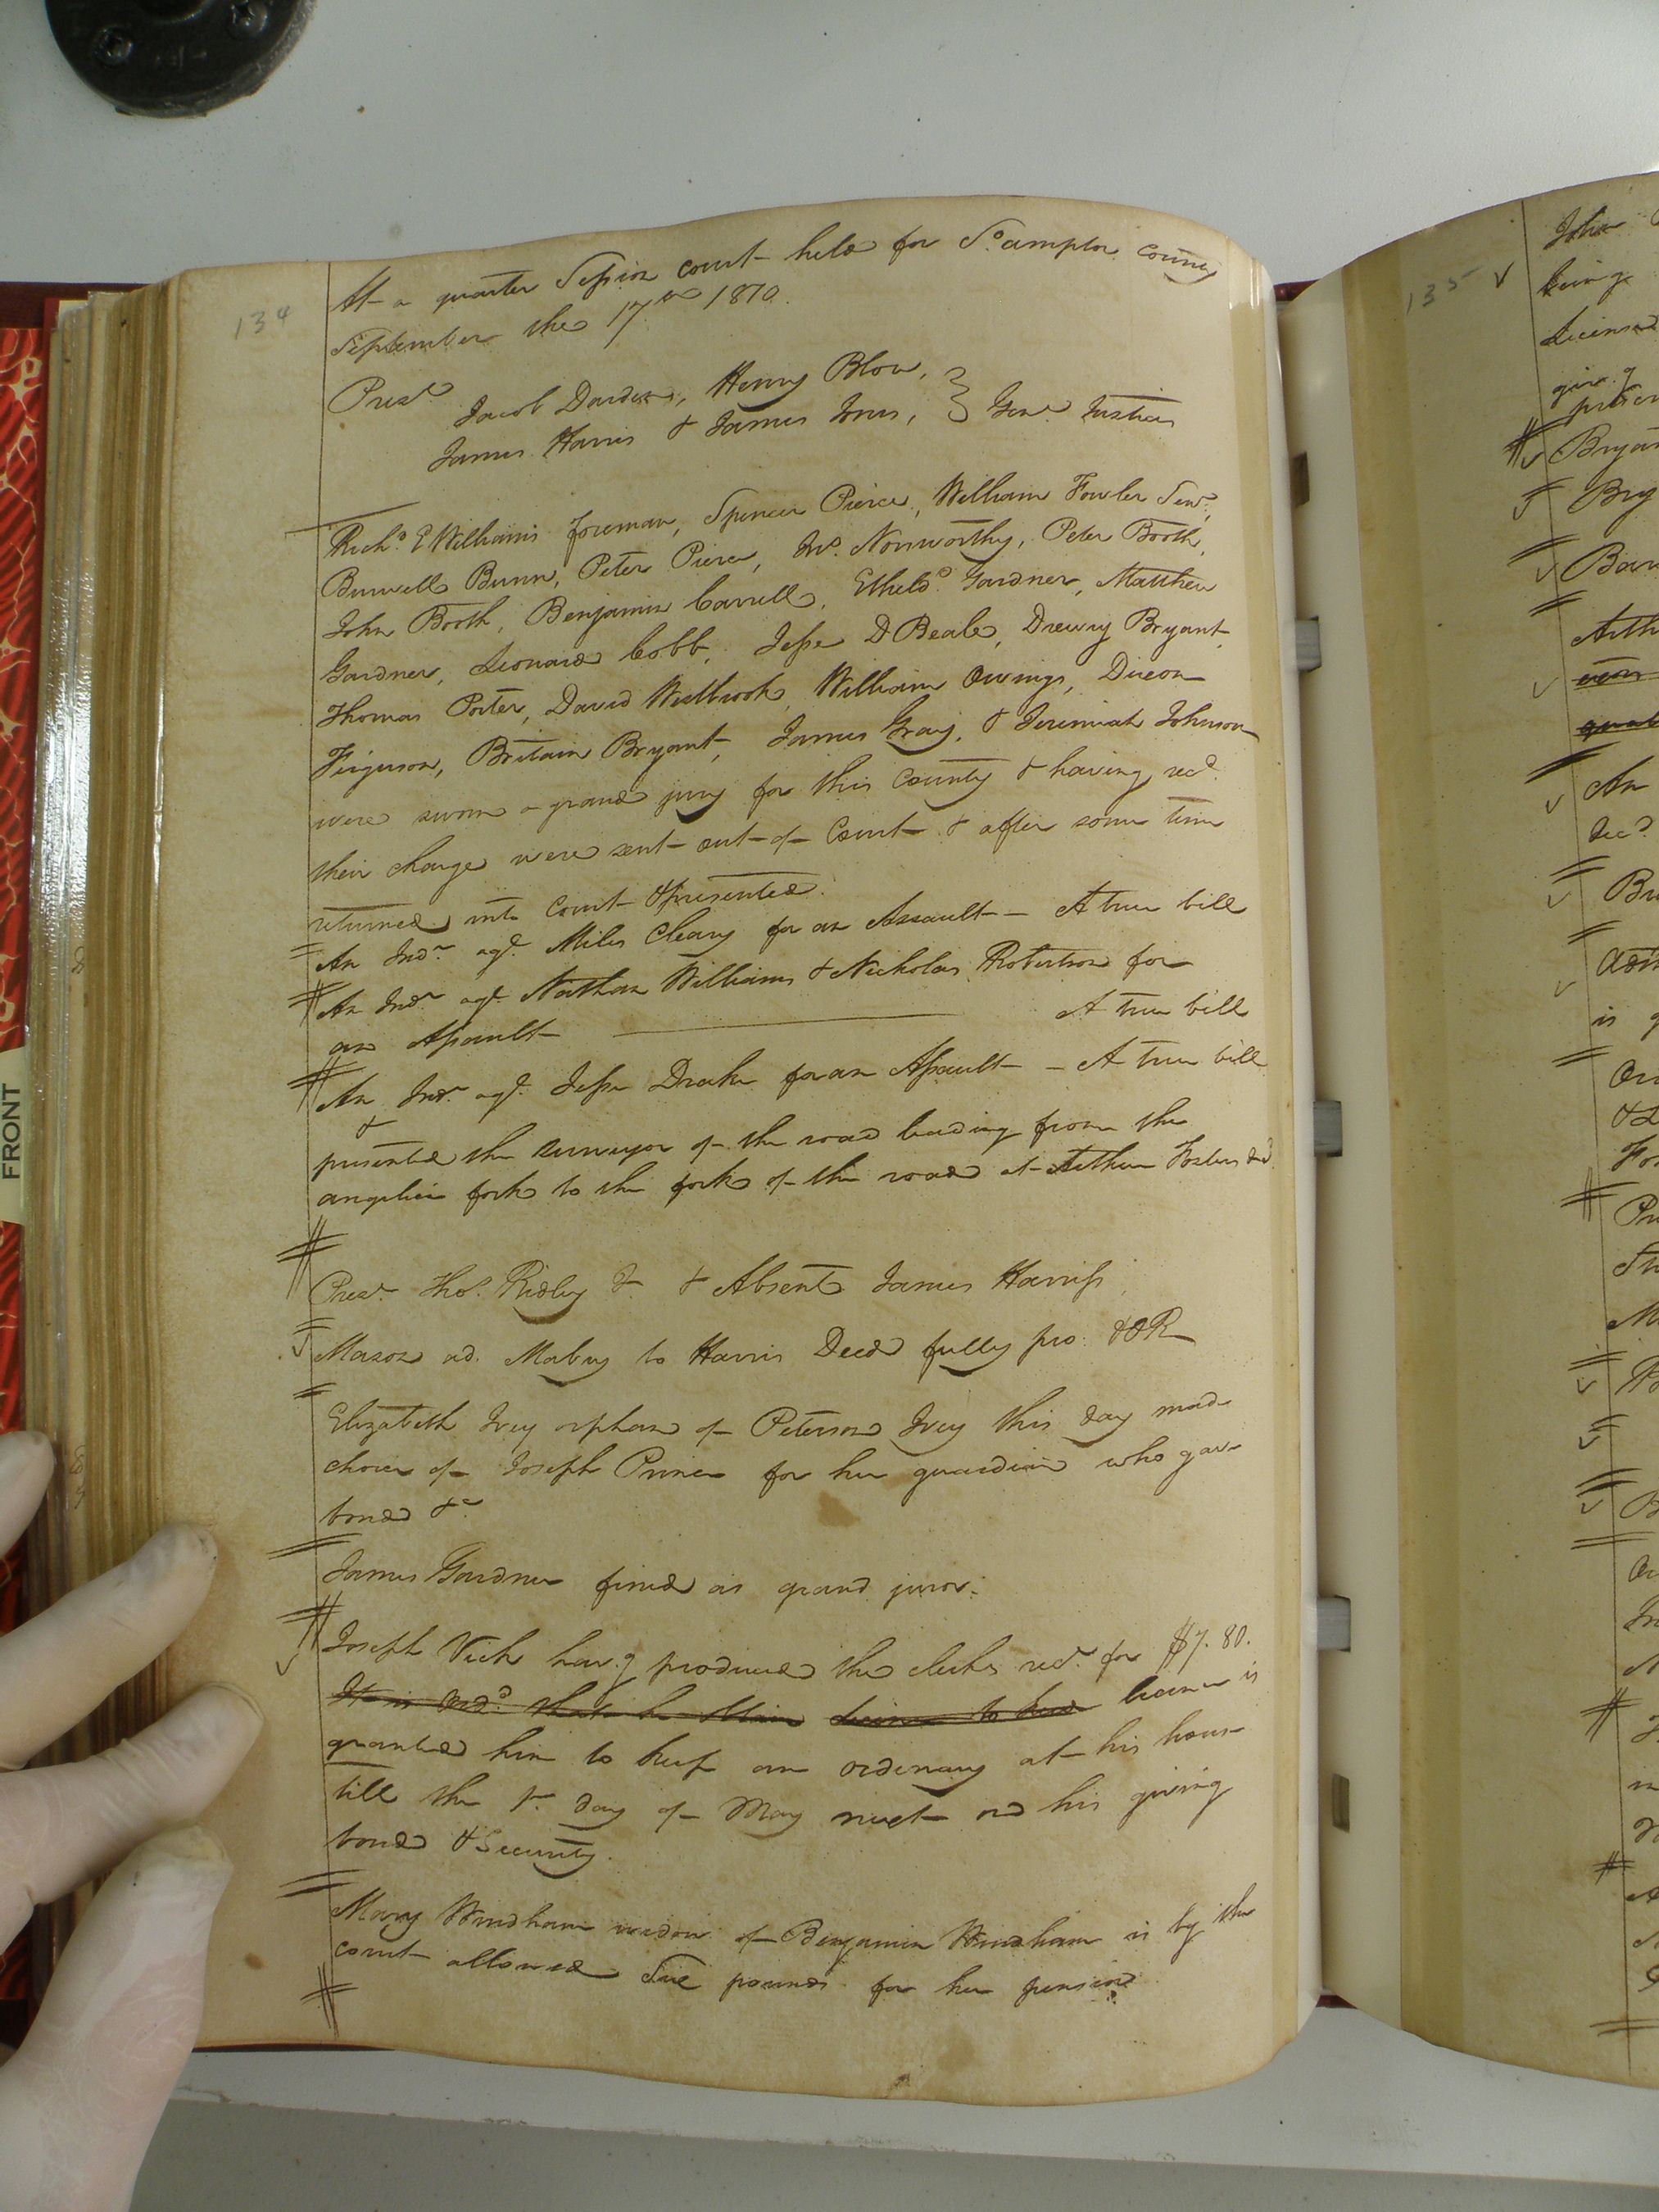 134
At a quarter Session court held for So.ampton county
September the 17th 1810.
Prest. Jacob Darden, Henry Blow,
James Harris & James Jones, } Gent. Justices
Richd. E Williams foreman, Spencer Pierce, William Fowler Senr.
Burwell Bunn, Peter Pierce, Jno. Norsworthy, Peter Booth,
John Booth, Benjamin Carrell, Etheld. Gardner, Matthew
Gardner, Leonard Cobb, Jesse D Beale, Drewry Bryant,
Thomas Porter, David Westbrook, William Owings, Dixon
Ferguson, Britain Bryant, James Gray, & Jeremiah Johnson
were sworn a grand jury for this County & having recd.
their charge were sent out of Court & after some time
returned into Court & presented.
An Indt. agt. Miles Cleary for an Assault — A true bill
An Indt. agt. Nathan Williams & Nicholas Robertson for
an Assault — A true bill
An Indt. agt. Jesse Drake for an Assault — A true bill
&
presented the surveyor of the road leading from the
fork to the fork of the road at Arthur Fosters decd.
Prest. Tho. Ridley & Absent James Harriss
Mason ad. Mabry to Harris Deed fully pro. & OR
Elizabeth Ivey orphan of Peterson Ivey this day made
choice of Joseph Prince for her guardian who gave
bond &c
James Gardner fined as grand juror.
Joseph Vick havg. produced the clerks rect. for $7.80.
It is Ordd. that he license to keep license is
granted him to keep an ordenary at his house
till the 1st. day of May next on his giving
bond & Security.
Mary Windham widow of Benjamin Windham is by the
court allowed Six pounds for her pension
135
John
being
license
givg.
Bryan
FRONT